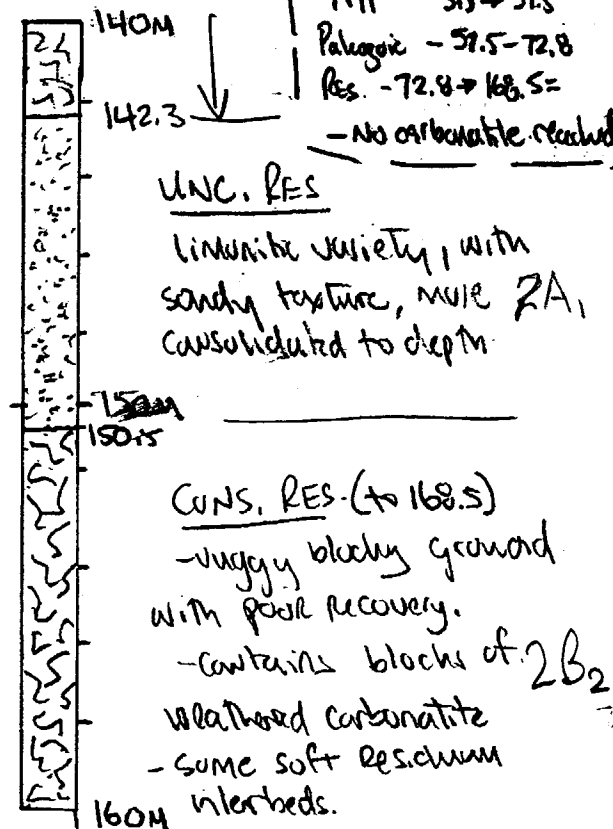 140M
Paleozoic - 59.5-72.8
Res. - 72.8→168.5=
- No carbonatite reached
142.3
UNC. RES
limonitic variety, with
sandy texture, more 2A,
consolidated to depth
150M
150.5
CONS. RES. (to 168.5)
- vuggy blocky ground
with poor recovery.
- contains blocks of 2B2
weathered carbonatite
- some soft residuum
interbeds.
160M